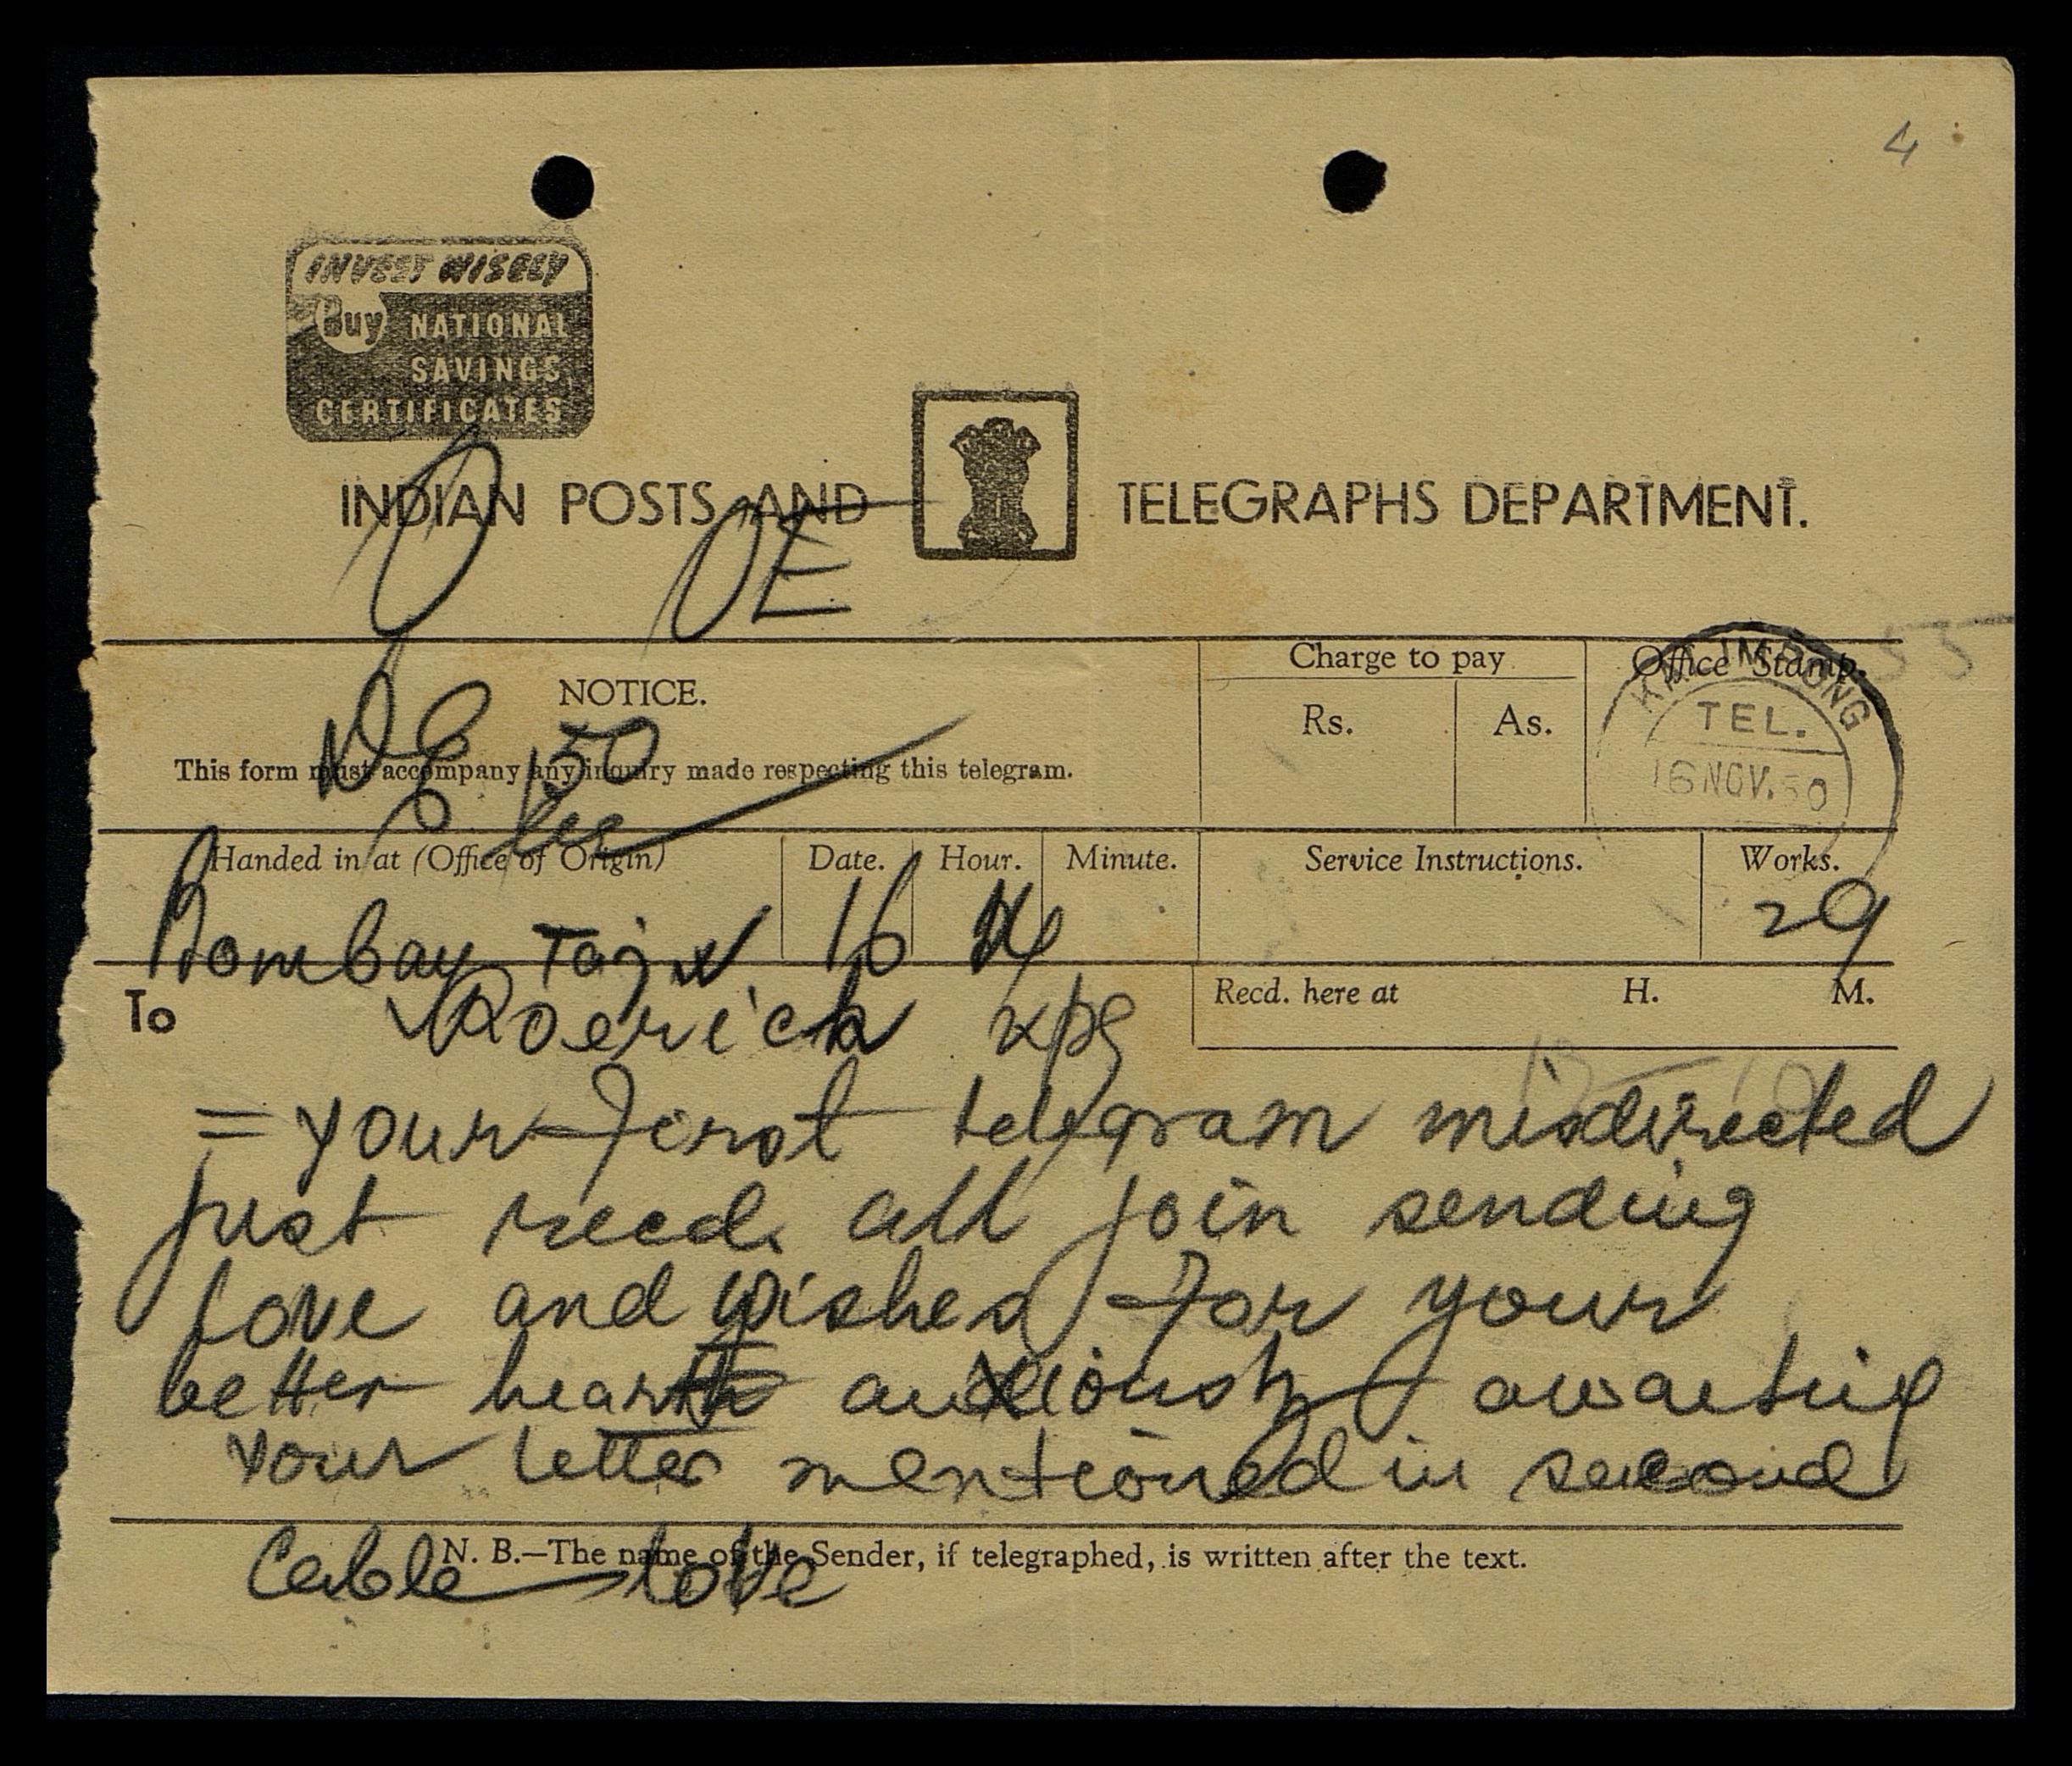 4
INVEST WISELY
Buy NATIONAL
SAVINGS
CERTIFICATES
INDIAN POSTS AND TELEGRAPHS DEPARTMENT.
Charge to pay
Office Stamp.
NOTICE.
Rs. As.
KALIMPONG
TEL.
16 NOV. 50
This form must accompany any inquiry made respecting this telegram.
50
Handed in at (Office of Origin) Date. Hour. Minute. Service Instructions. Works.
Bombay Taj 16 29
Recd. here at H. M.
To Roerich kpg
= your first telegram misdirected
just recd. all join sending
love and wishes for your
better health anxiously awaiting
your letter mentioned in second
N. B.—The name of the Sender, if telegraphed, is written after the text.
Cable love